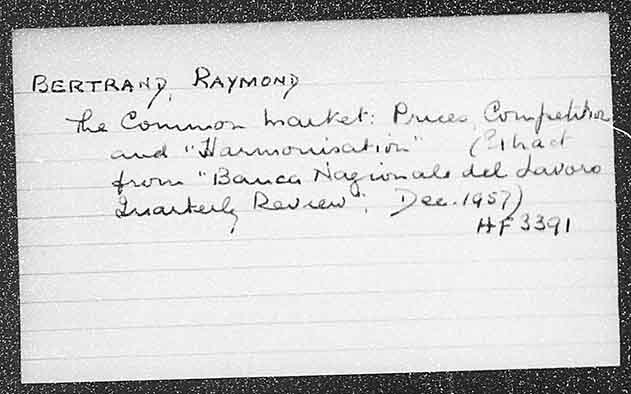 BERTRAND, RAYMOND
The Common Market: Prices, Competition
and "Harmonisation" (Extract
from "Banca Nazionale del Lavoro
Quarterly Review", Dec. 1957)
HF 3391